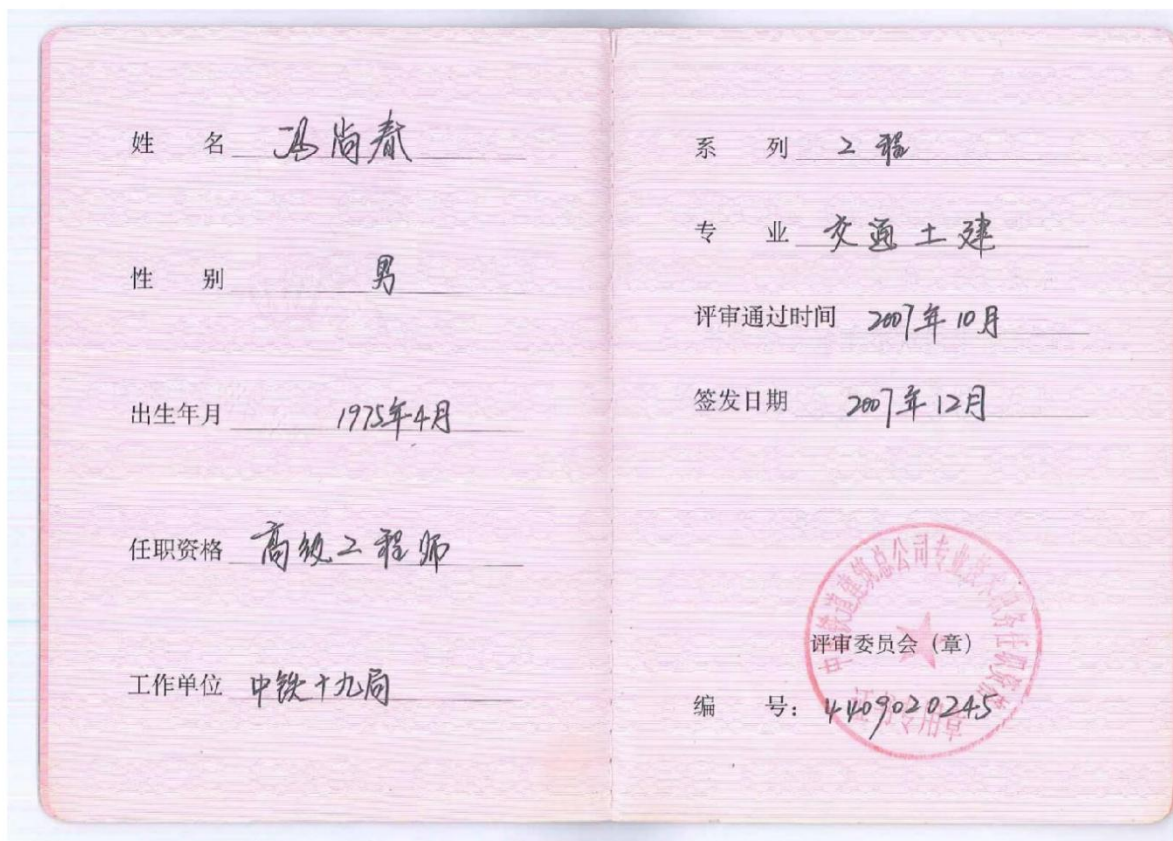 姓 名 冯尚春
性 别 男
出生年月 1975年4月
任职资格 高级工程师
工作单位 中铁十九局
系 列 工程
专 业 交通土建
评审通过时间 2007年10月
签发日期 2007年12月
中国铁道建筑总公司专业技术职务任职资格
评审委员会（章）
编 号：4409020245
证书专用章